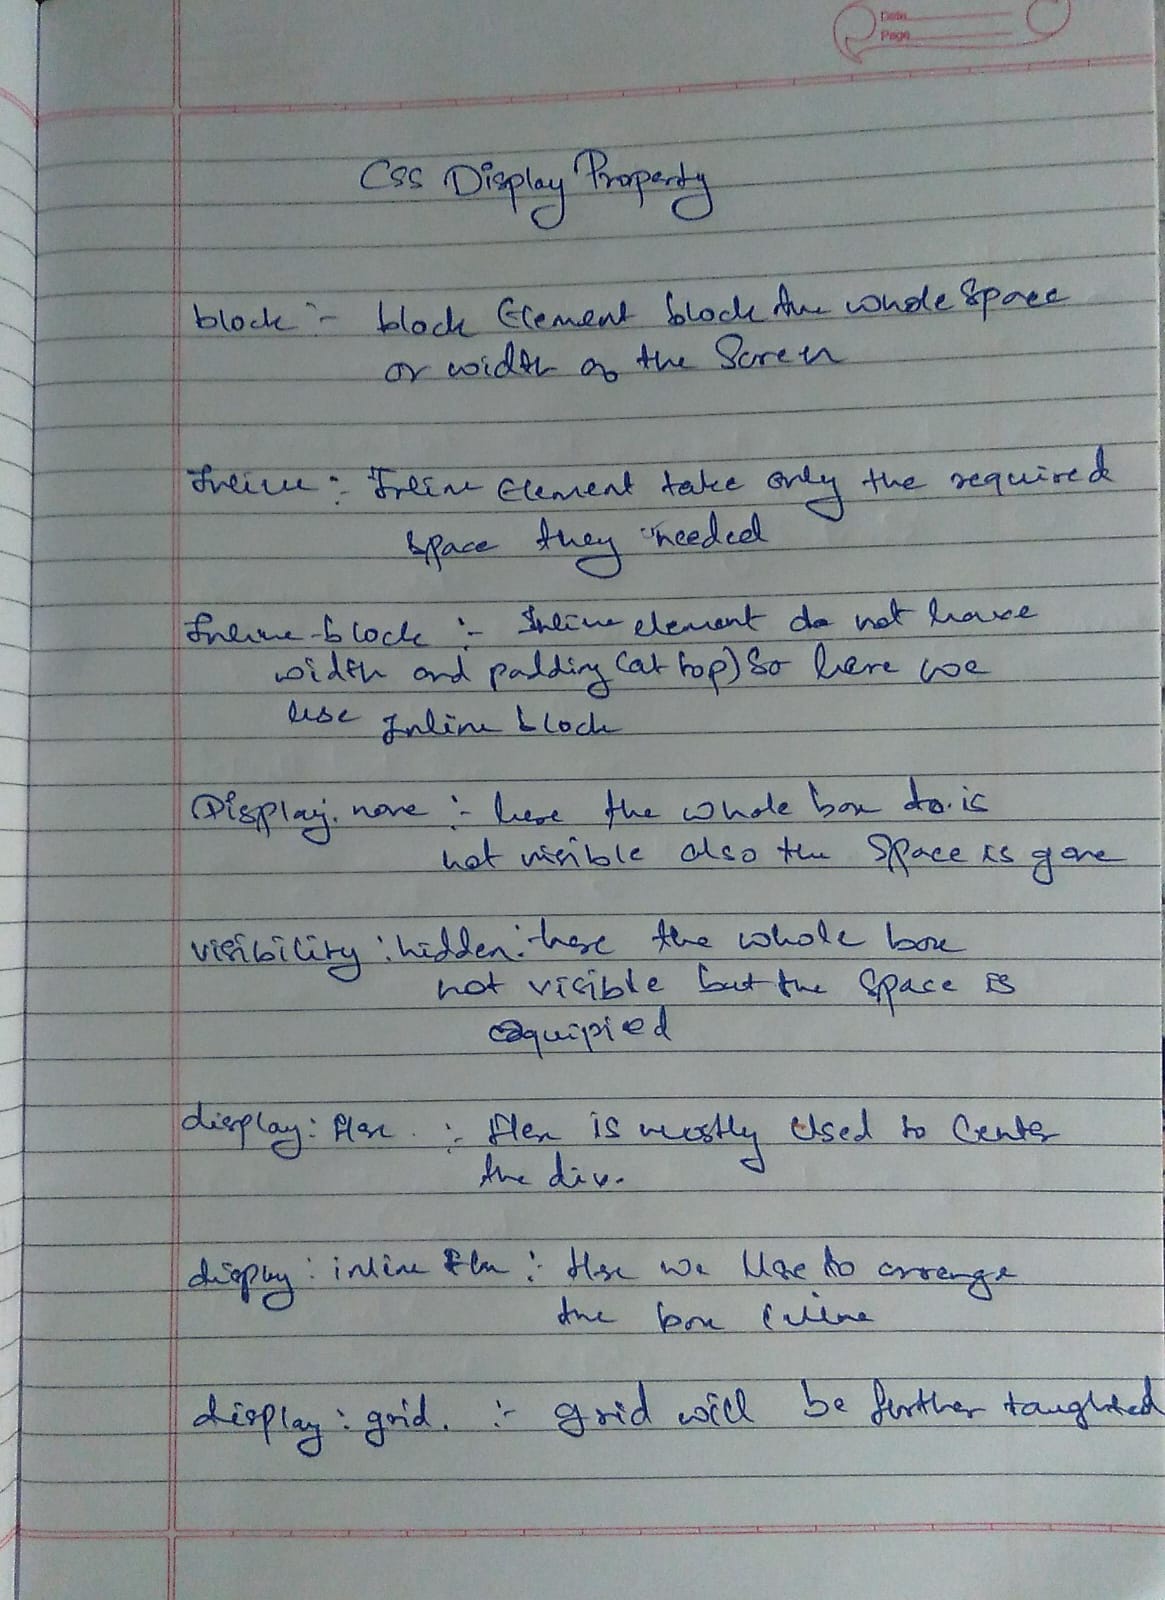 Date
Page
Css Display Property
block :- block Element block the whole Space
or width of the Screen
Inline :- Inline Element take only the required
space they needed
Inline-block :- Inline element do not have
width and padding (at top) So here we
use Inline block
Display: none :- here the whole box to is
not visible also the Space is gone
visibility : hidden :- here the whole box
not visible but the Space is
equipied
display : flex :- flex is mostly Used to Center
the div.
display : inline flex :- Here we Use to arrange
the box inline
display : grid. :- grid will be further taughted